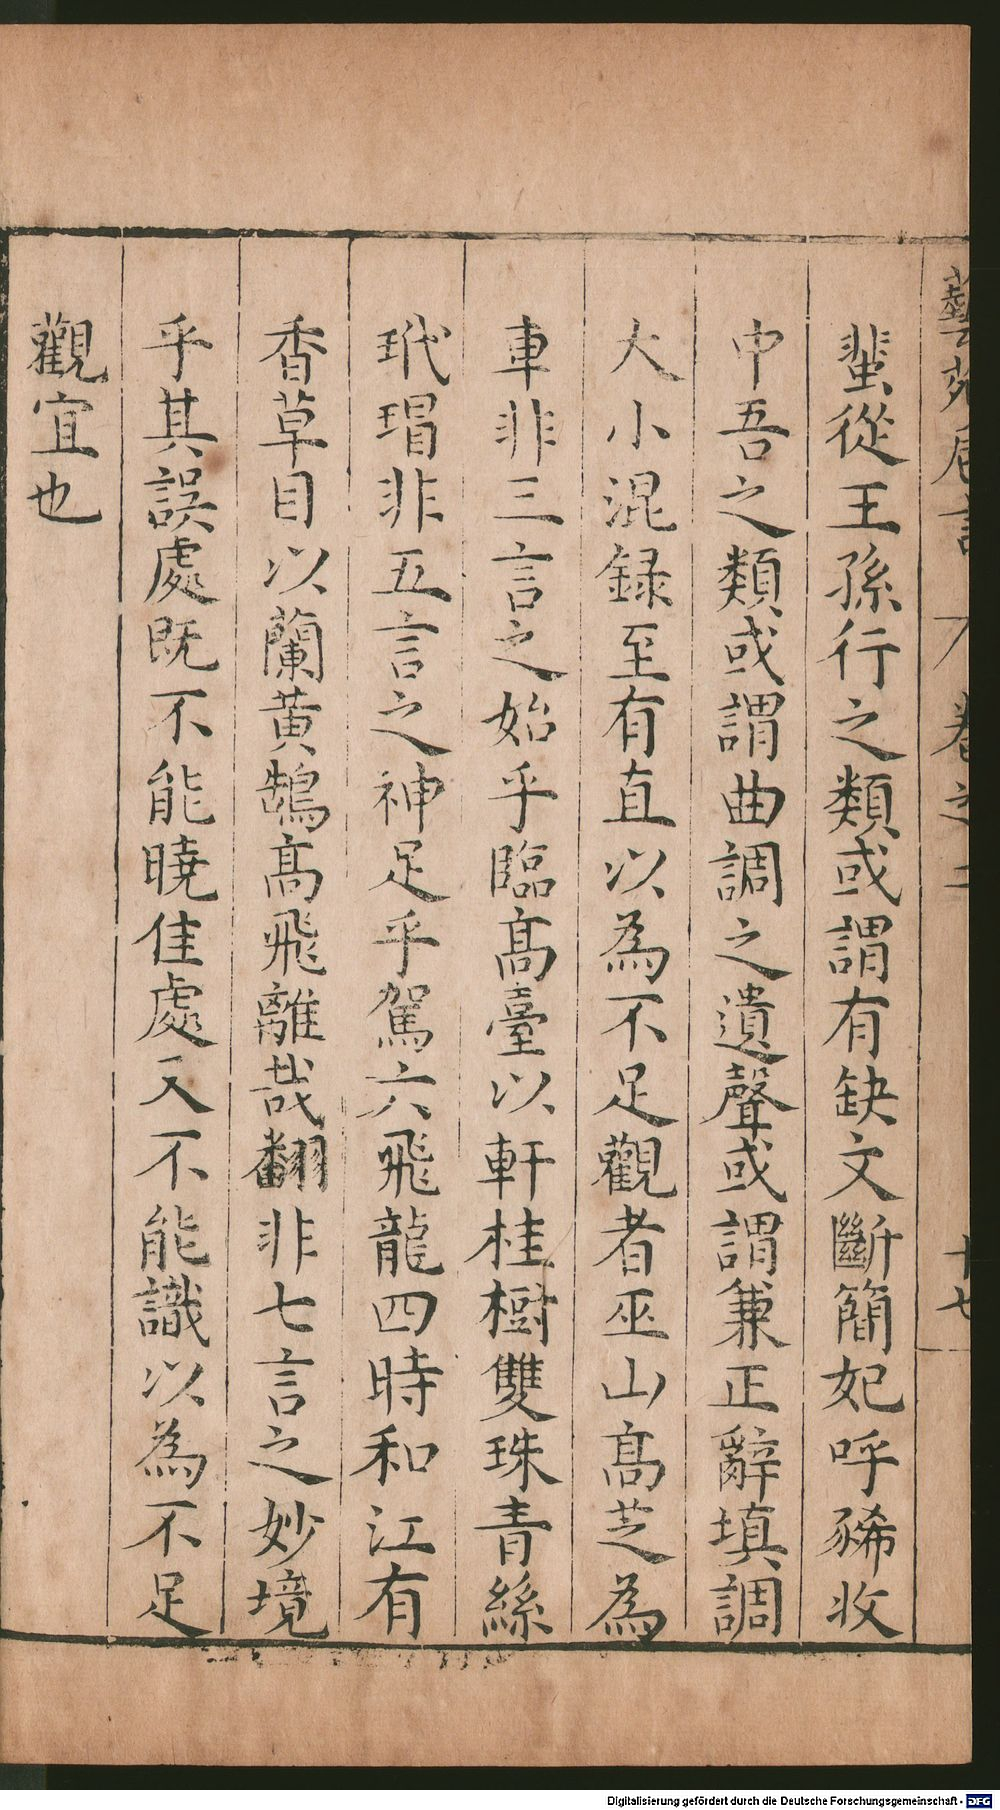 藝苑卮言 卷之二 十七
蜚從王孫行之類或謂有缺文斷簡妃呼豨收
中吾之類或謂曲調之遺聲或謂兼正辭填調
大小混録至有直以為不足觀者巫山高芝為
車非三言之始乎臨高臺以軒桂樹雙珠青絲
玳瑁非五言之神足乎駕六飛龍四時和江有
香草目以蘭黃鵠高飛離哉翻非七言之妙境
乎其誤處既不能曉佳處又不能識以為不足
觀宜也
Digitalisierung gefördert durch die Deutsche Forschungsgemeinschaft - DFG